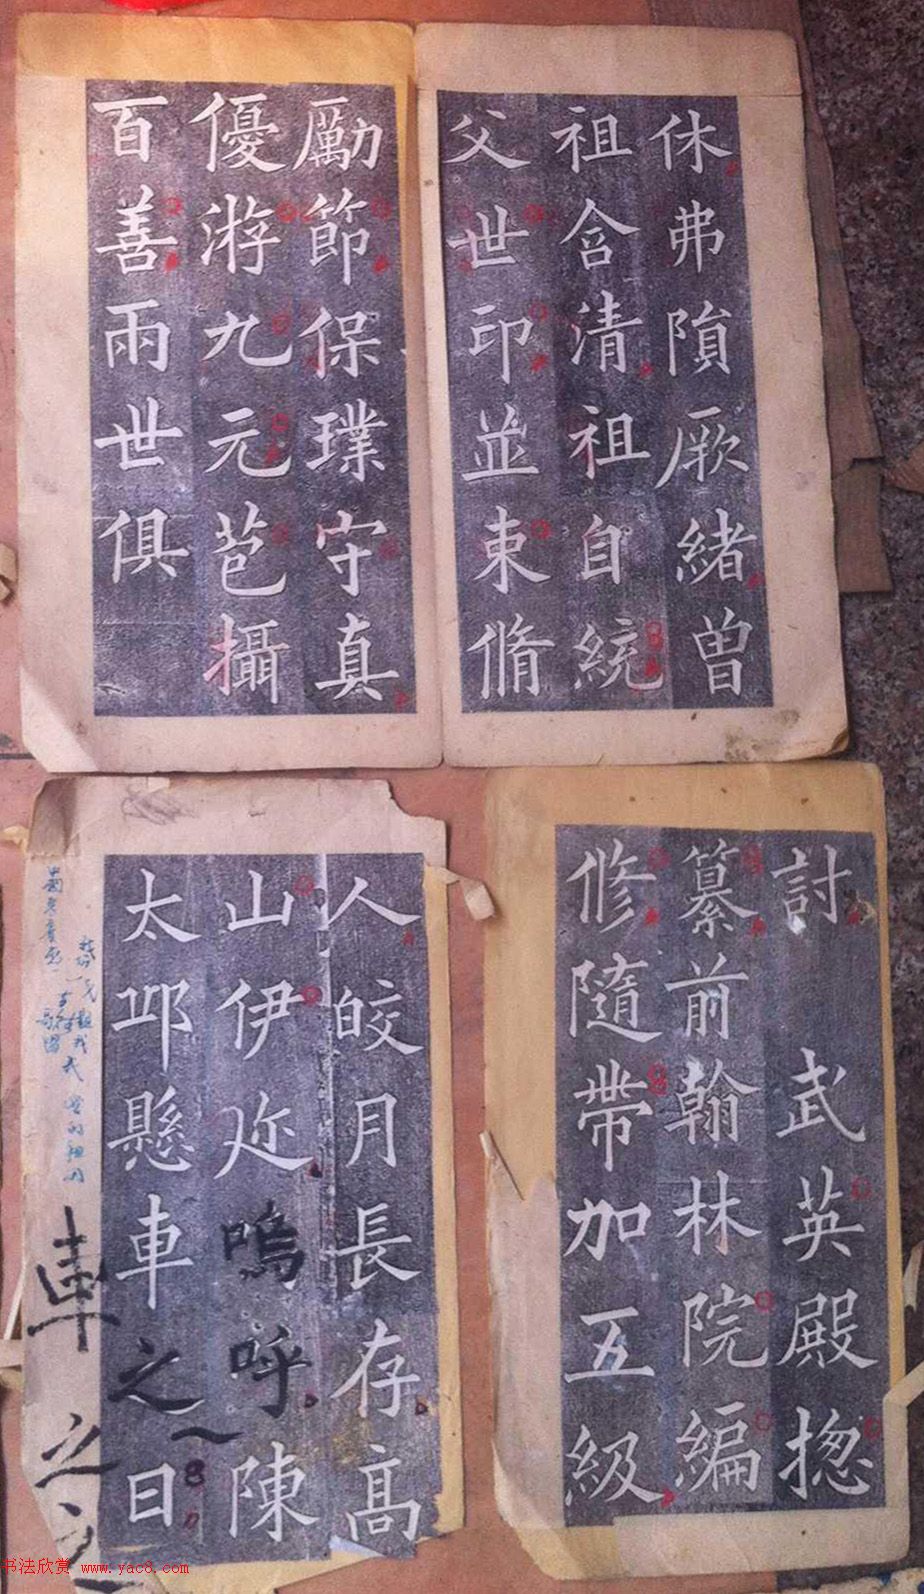 休弗隕厥緒曽
祖含清祖自統
父世印並束脩
勵節保璞守真
優游九元苞攝
百善兩世俱
討武英殿揔
纂前翰林院編
修隨帶加五級
人皎月長存高
山伊迩嗚呼陳
太邱懸車之日
車
之
书法欣赏 www.yac8.com